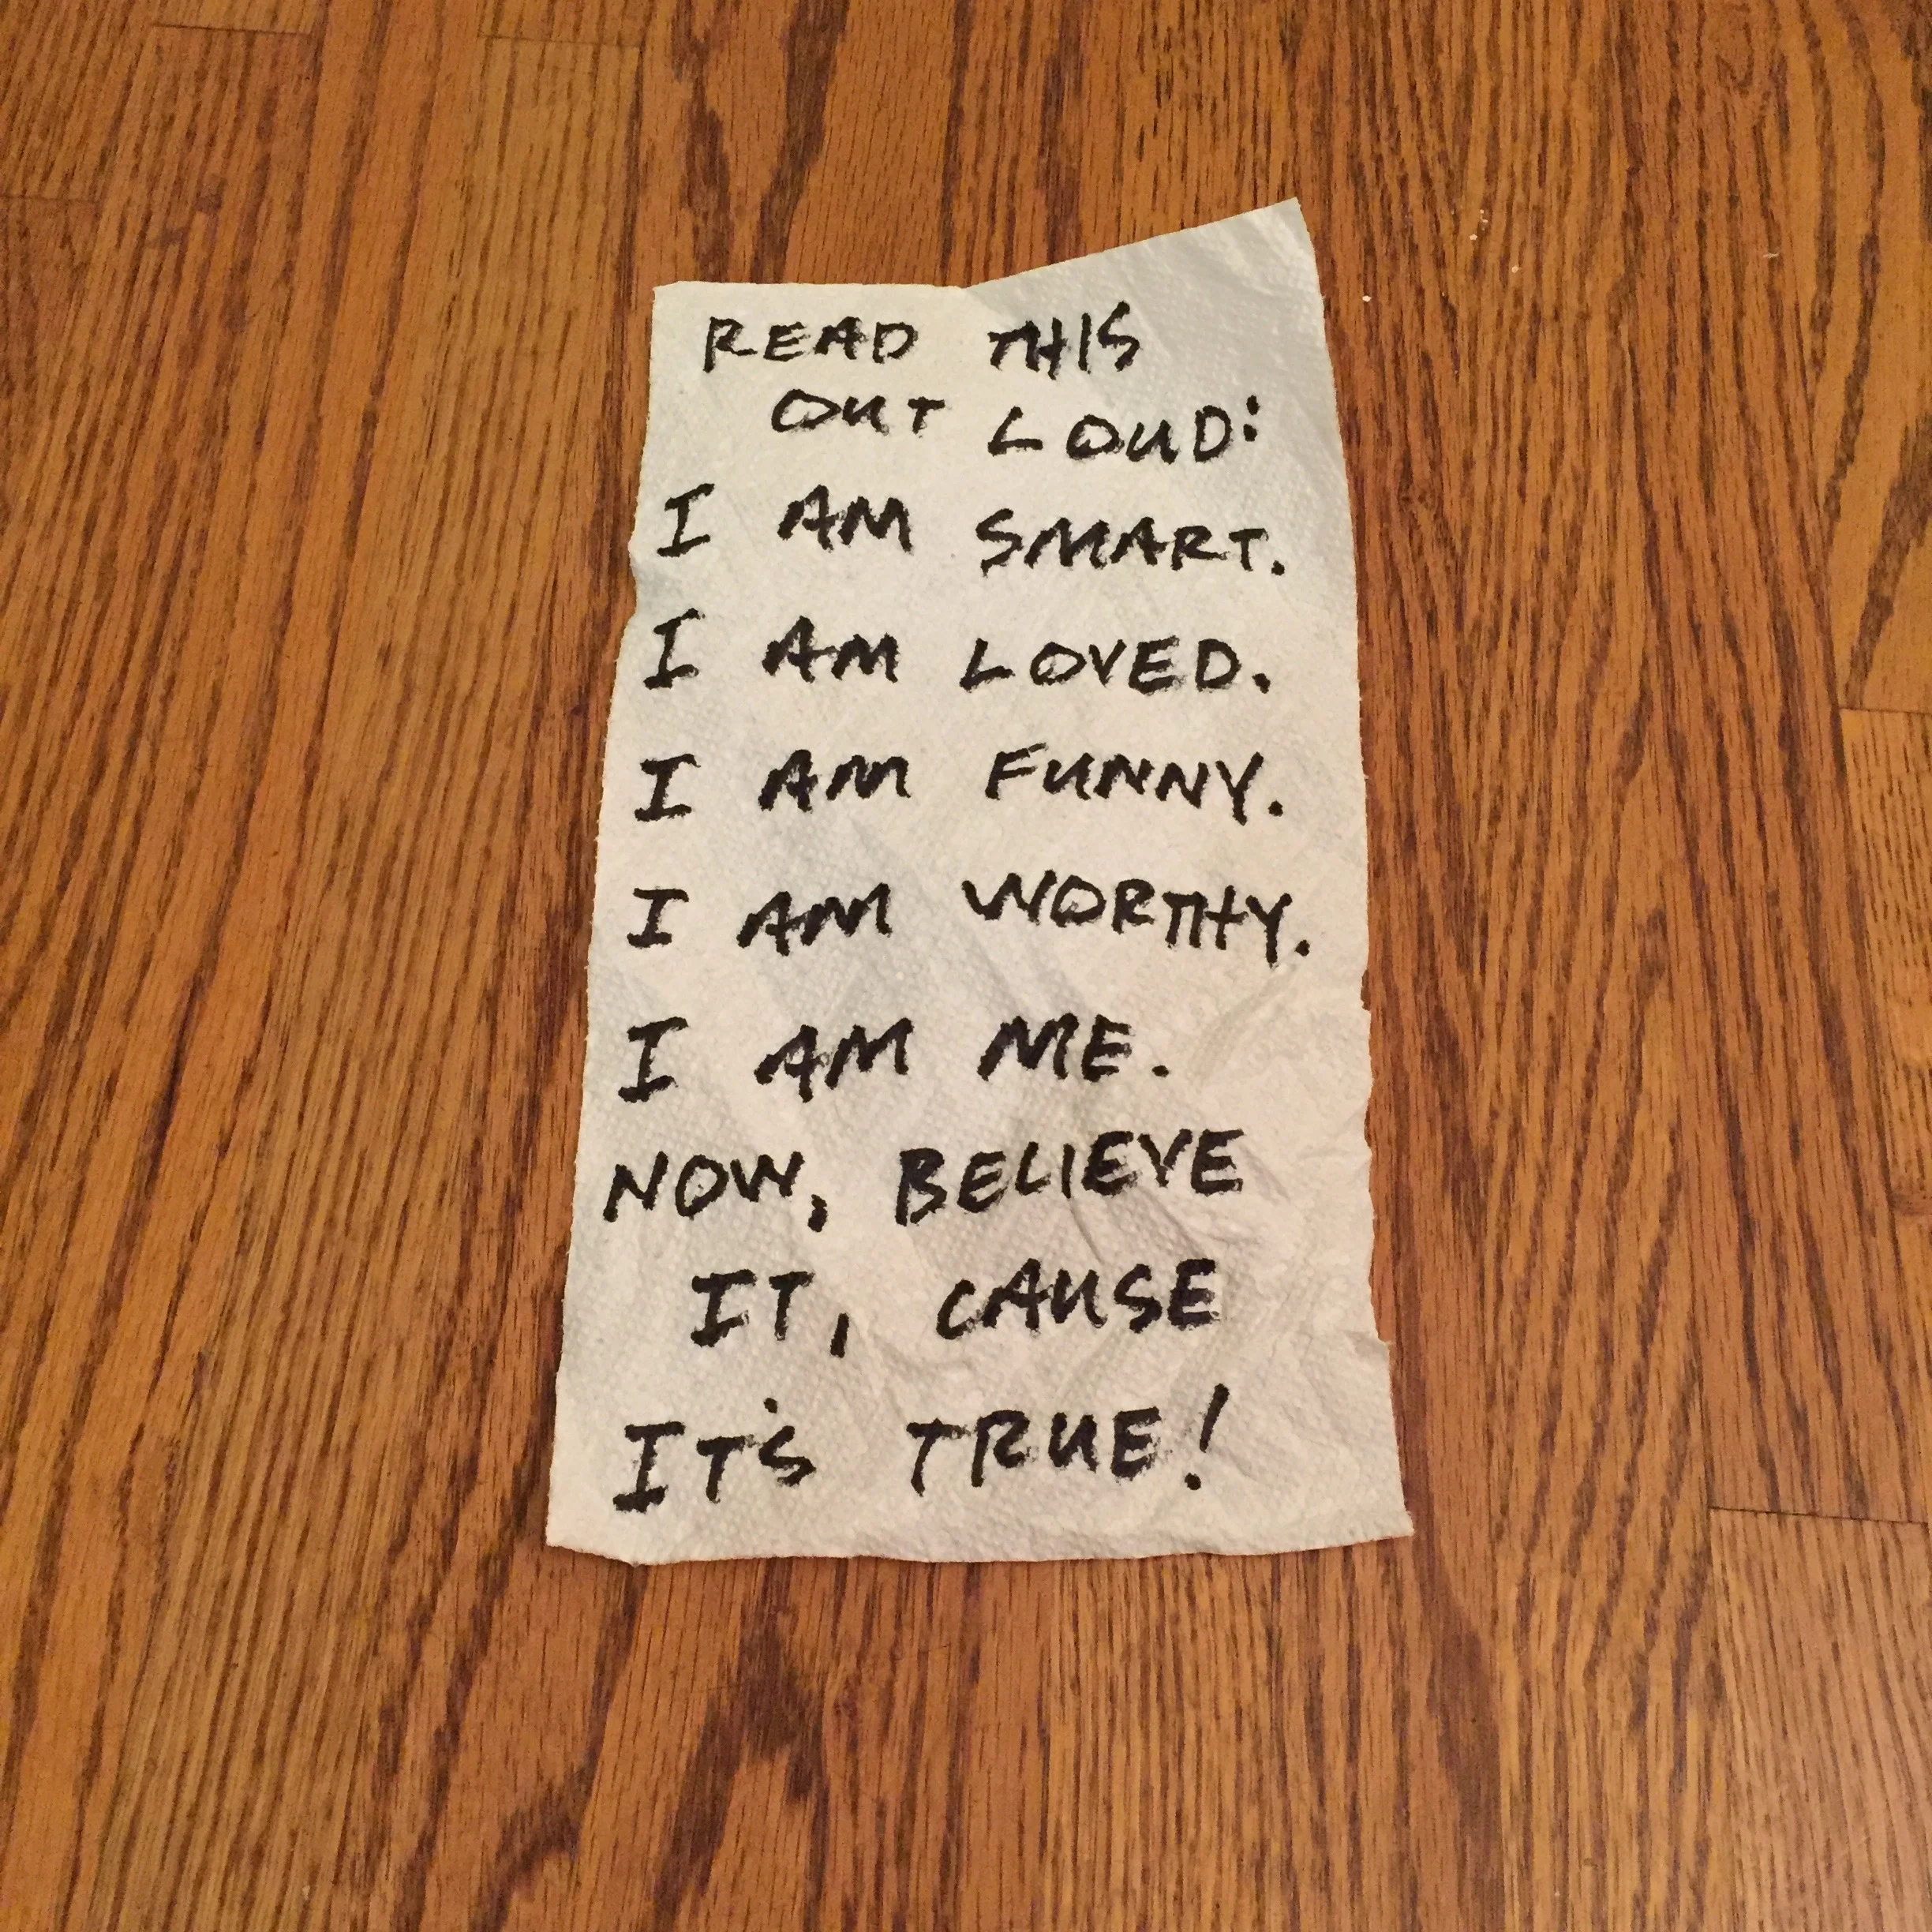 READ THIS
OUT LOUD:
I AM SMART.
I AM LOVED.
I AM FUNNY.
I AM WORTHY.
I AM ME.
NOW, BELIEVE
IT, CAUSE
IT'S TRUE!